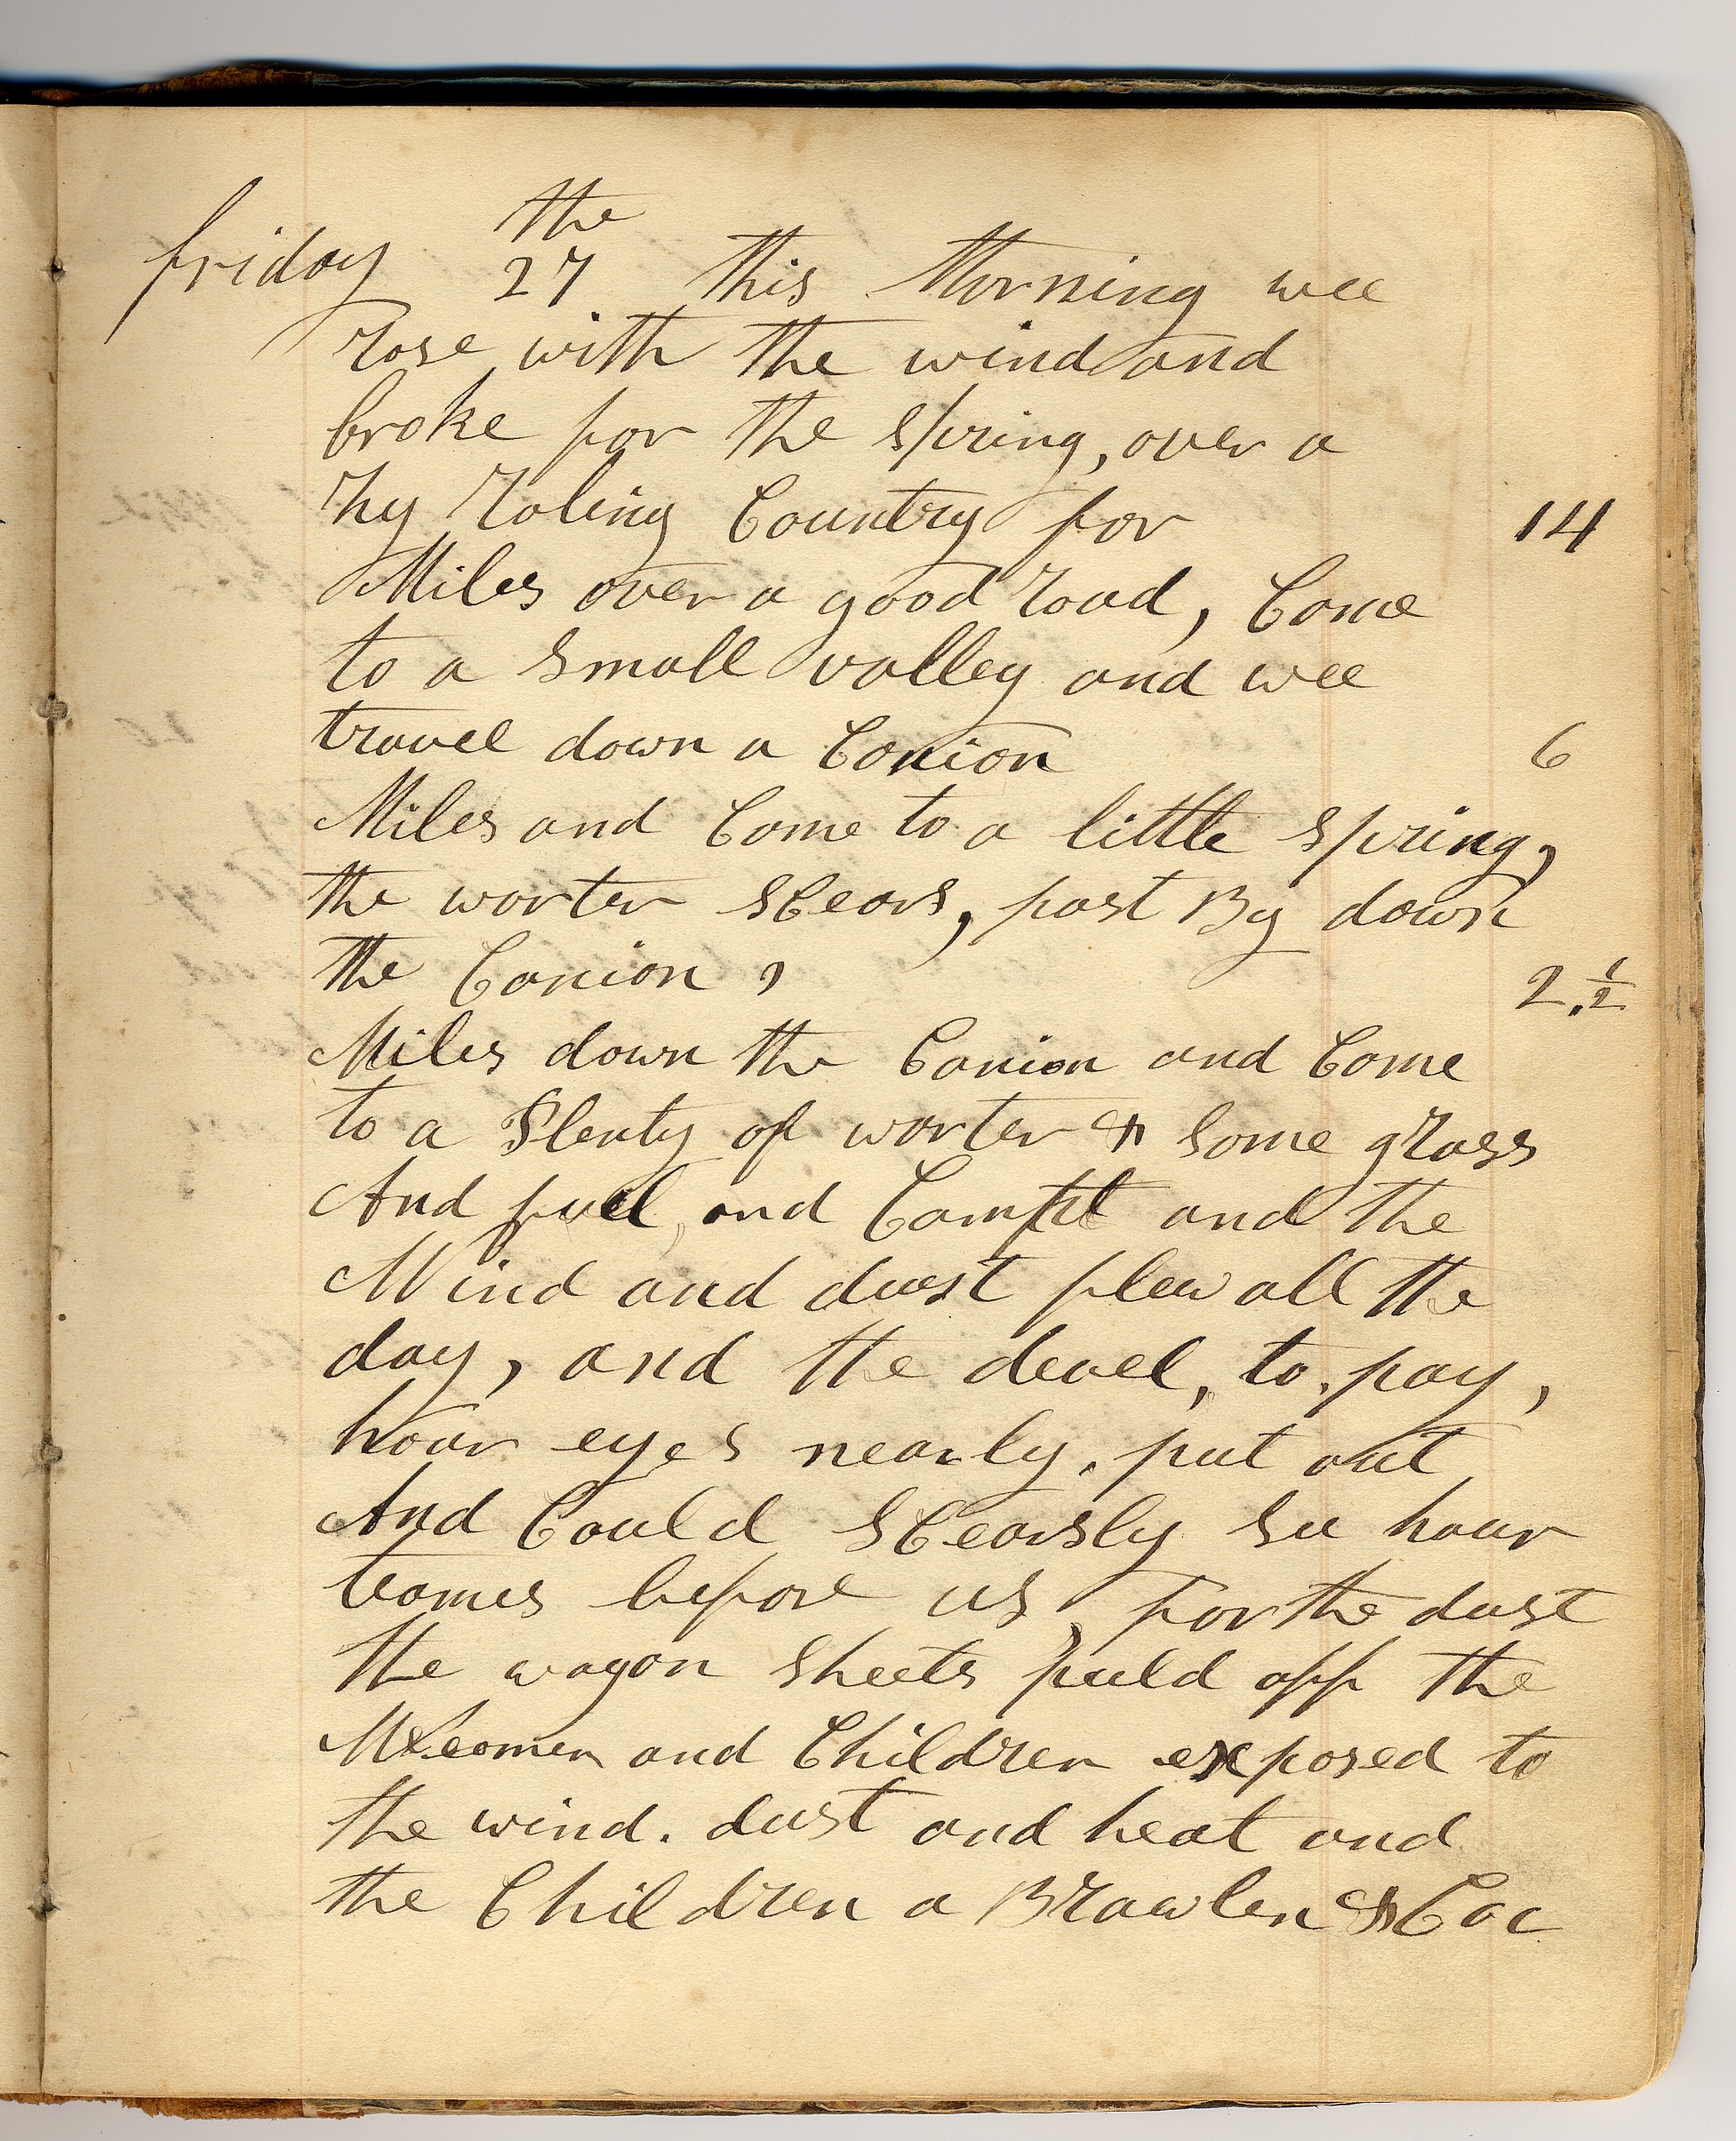 friday the 27 this Morning wee
rose with the wind and
broke for the spring, over a
hy roling Country for 14
Miles over a good road, Come
to a small valley and wee
travel down a Conion 6
Miles and Come to a little spring,
the worter sCears, past By down
the Conion, 2.½
Miles down the Conion and Come
to a Plenty of worter & some grass
And fuel, and Campt and the
Wind and dust flew all the
day, and the devel, to, pay,
hour eyes nearly. put out
And Could sCearsly see hour
teames before us, for the dust
the wagon sheets puld off the
Weomen and Children exposed to
the wind. dust and heat and
the Children a Brawlen & Coc